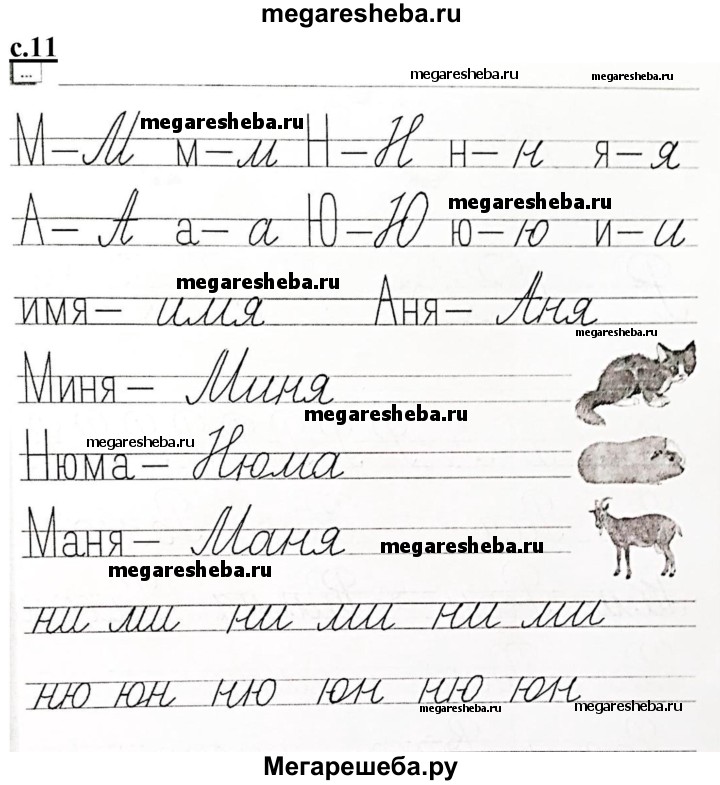 megaresheba.ru
с.11
...
megaresheba.ru megaresheba.ru
megaresheba.ru
М – М м – м Н – Н н – н я – я
megaresheba.ru
А – А а – а Ю – Ю ю – ю и – и
megaresheba.ru
имя – имя Аня – Аня
megaresheba.ru
Миня – Миня
megaresheba.ru
megaresheba.ru
Нюма – Нюма
Маня – Маня megaresheba.ru
megaresheba.ru
ни ми ни ми ни ми
ню юн ню юн ню юн
megaresheba.ru megaresheba.ru
Мегарешеба.ру